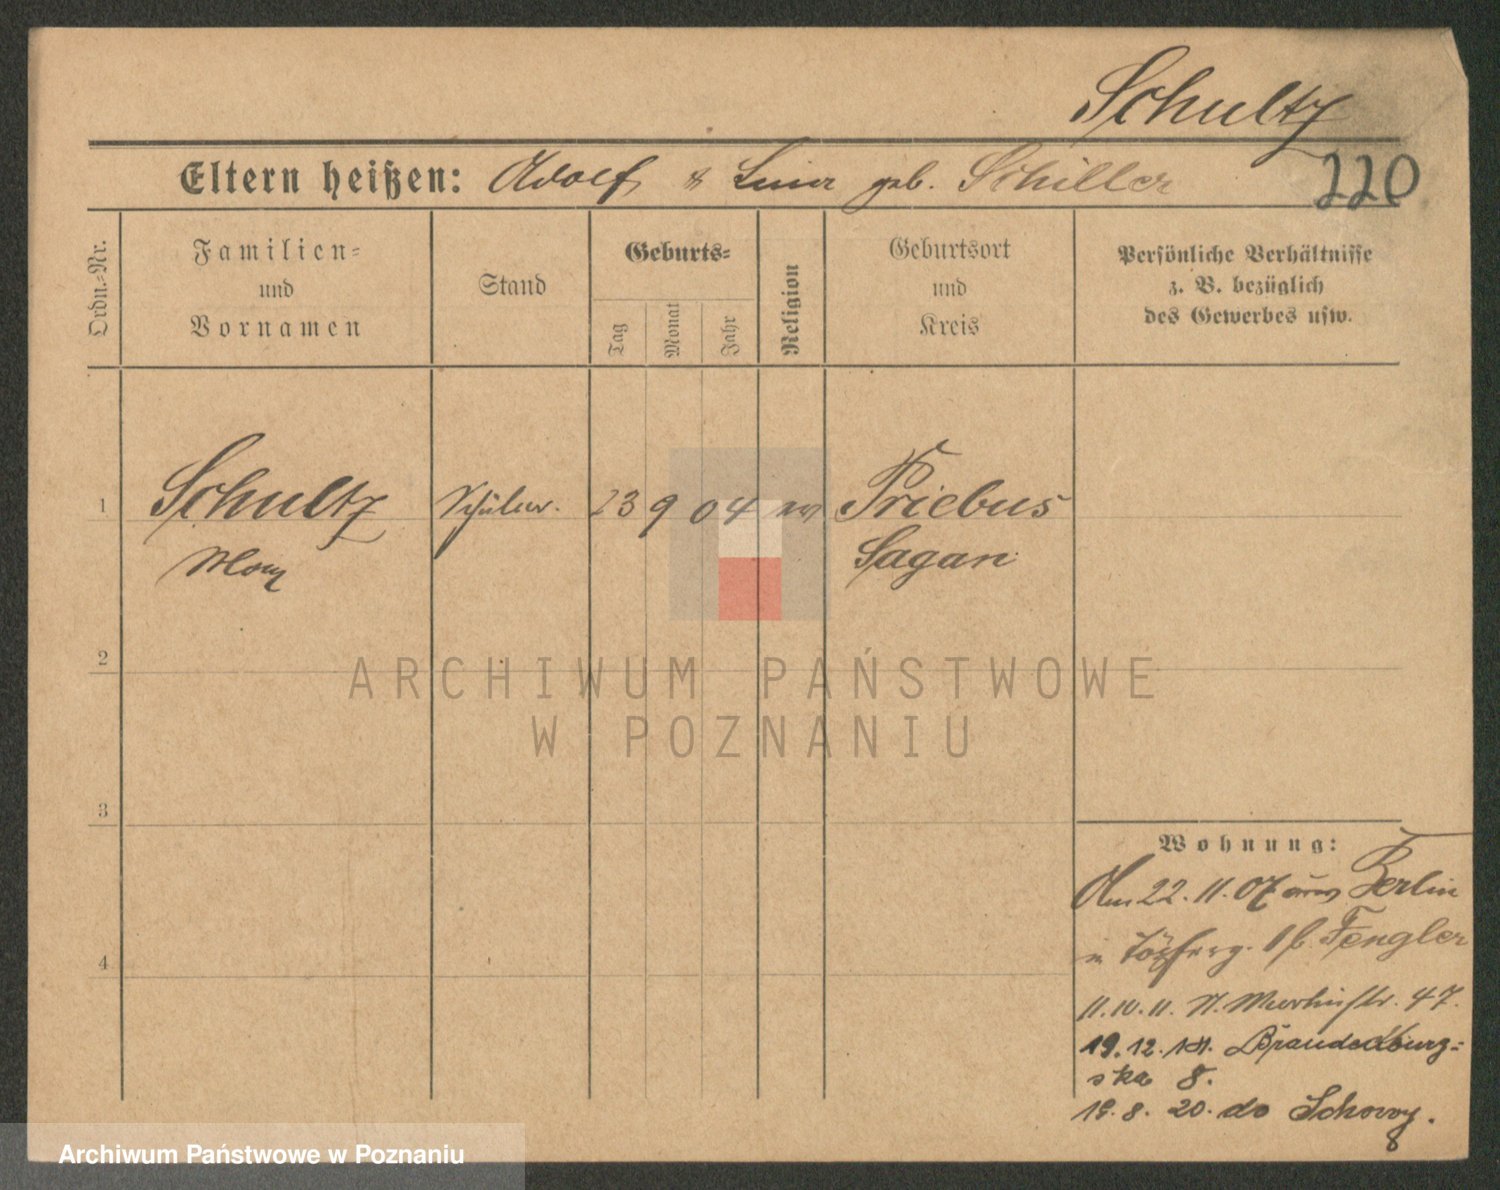 Schultz
Eltern heißen: Adolf & geb. Schiller
220
Ordn.-Nr.
Familien-
und
Vornamen
Stand
Geburts-
Tag
Monat
Jahr
Religion
Geburtsort
und
Kreis
Persönliche Verhältnisse
z. B. bezüglich
des Gewerbes usw.
1
Schultz
Schüler.
23 9 04 ev
Priebus
Max
Sagan
2
ARCHIWUM PAŃSTWOWE
W POZNANIU
3
Wohnung:
Am 22.11.07 aus Berlin
Fengler
4
11.10.11. N. Martinstr. 47.
19.12. Brandenburg-
ska 8.
19.8.20. do
Archiwum Państwowe w Poznaniu